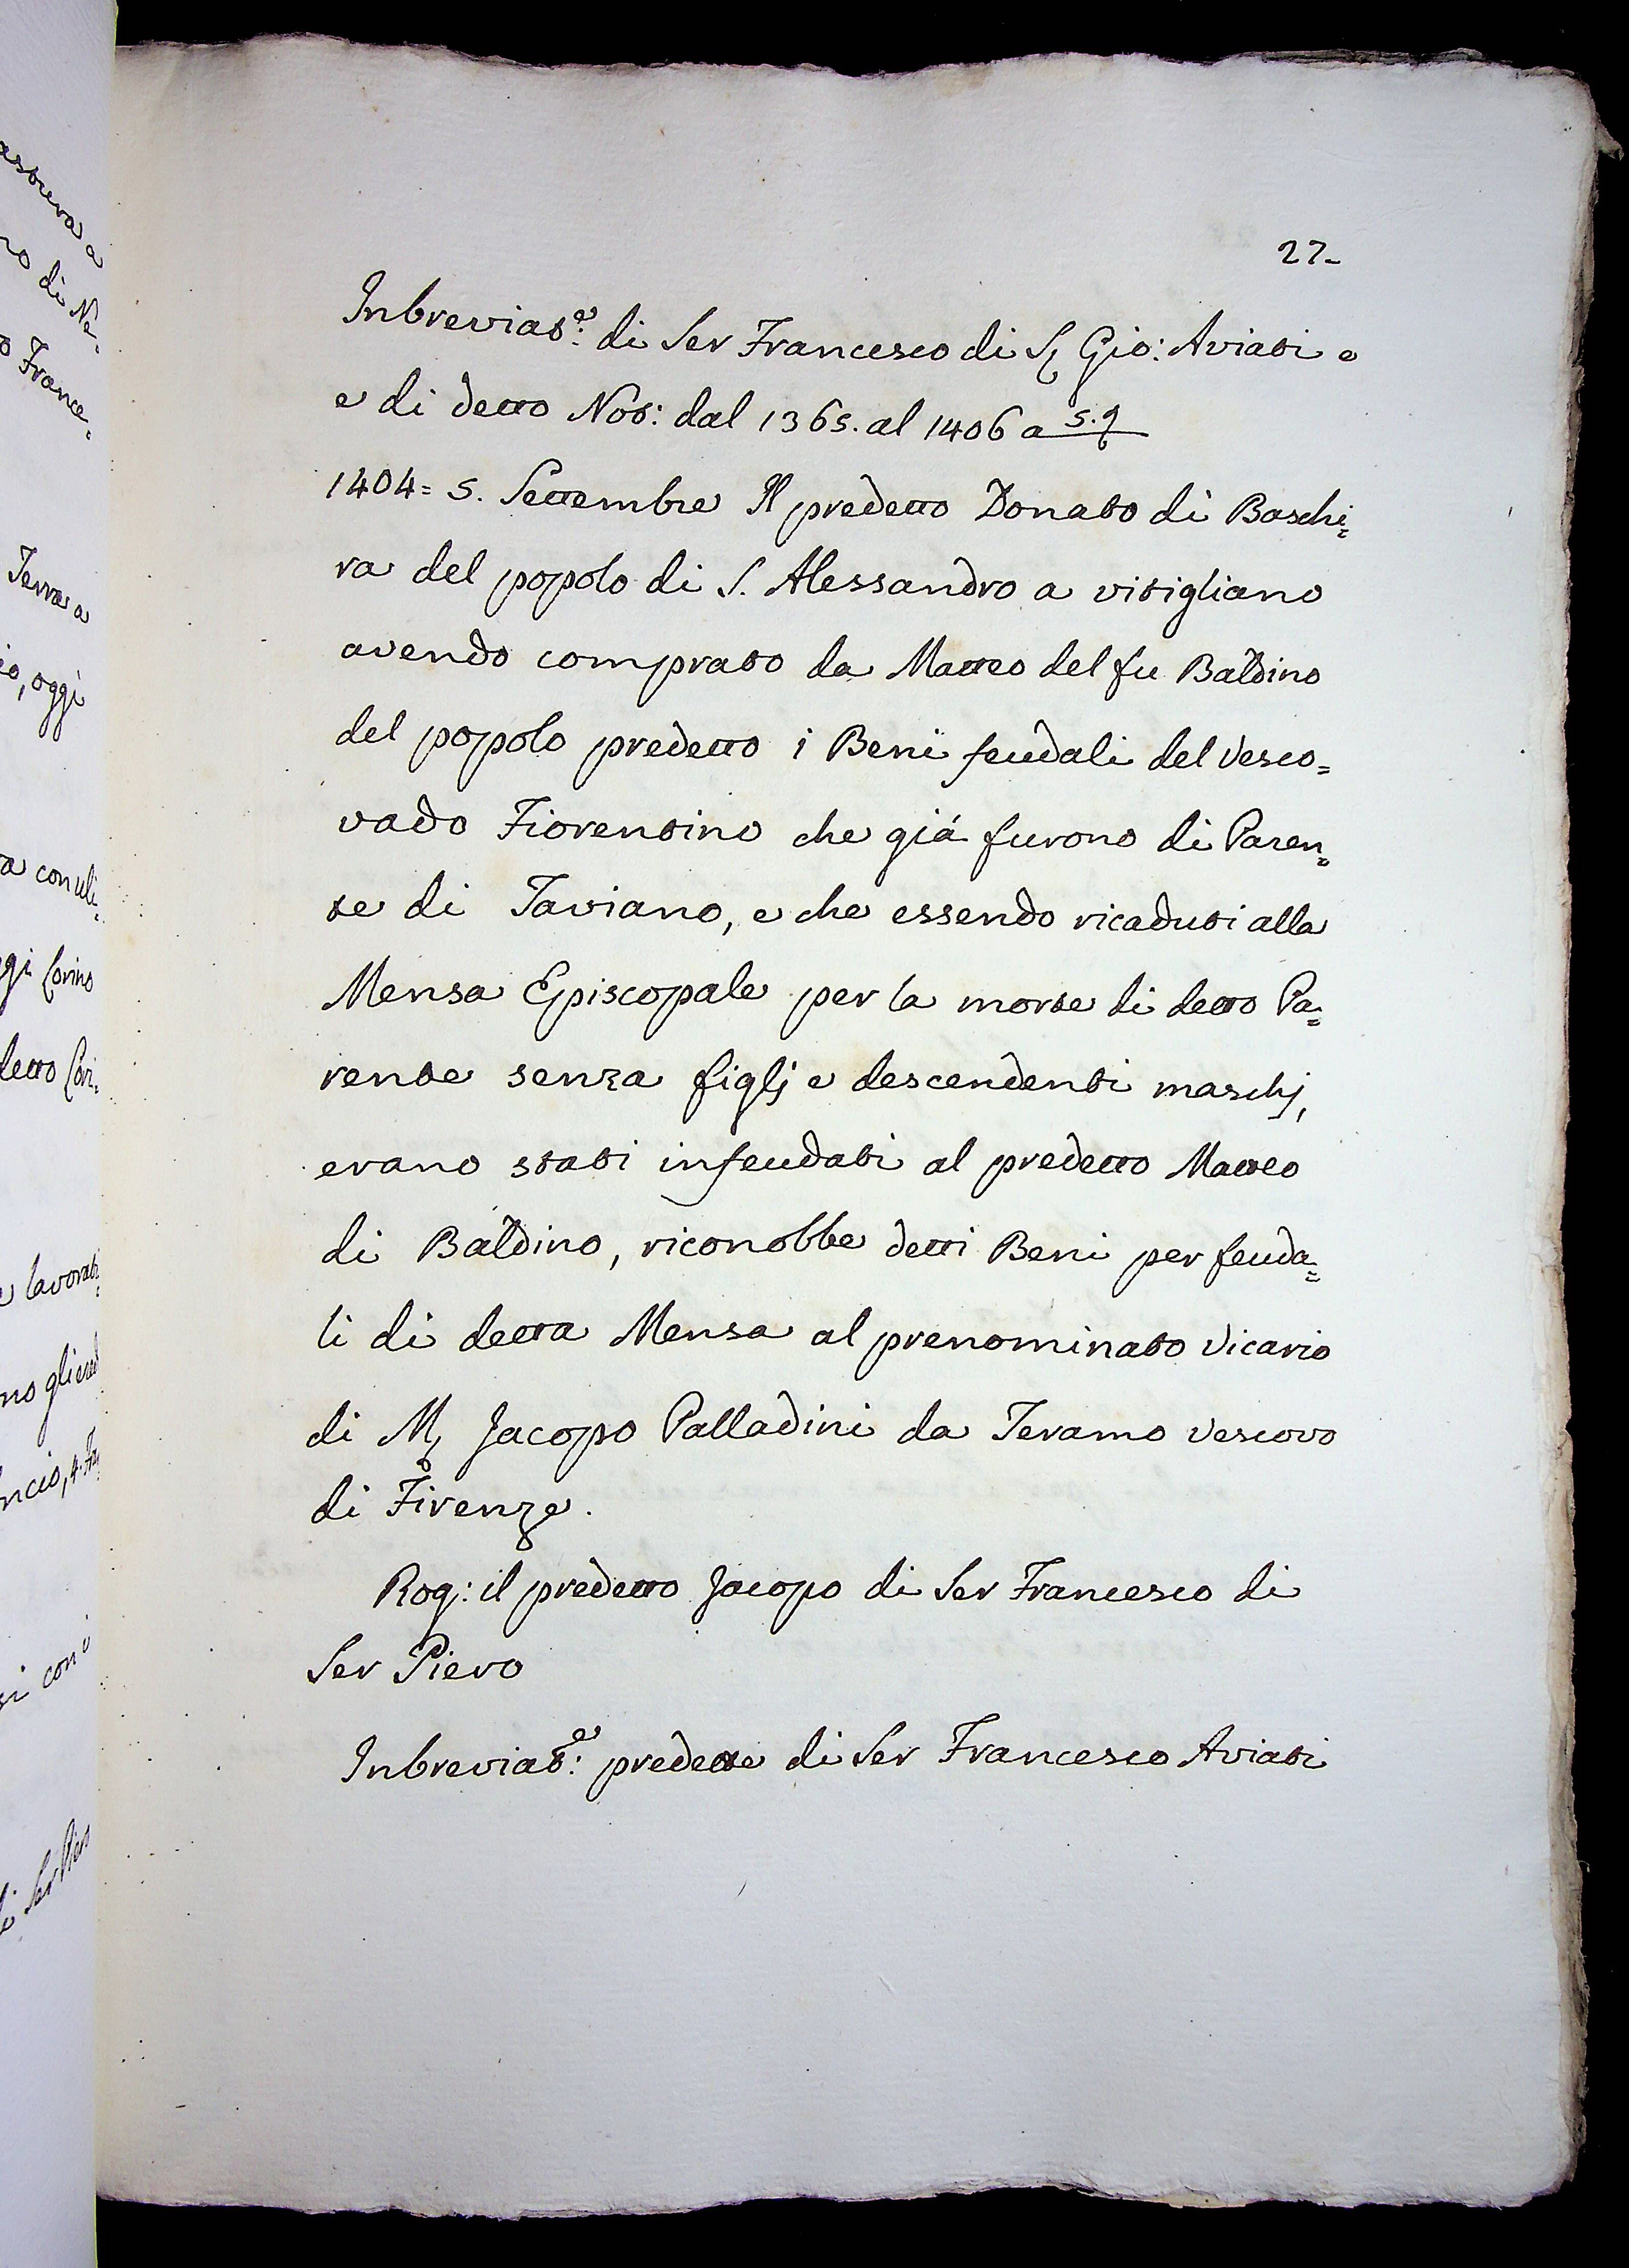 27-
Inbreviat.e di Ser Francesco di S. Gio: Aviati e
e di detto Not: dal 1365. al 1406 a 5.9
1404= 5. Settembre Il predetto Donato di Baschi=
ra del popolo di S. Alessandro a vitigliano
avendo comprato da Matteo del fu Baldino
del popolo predetto i Beni feudali del Vesco=
vado Fiorentino che giá furono di Paren=
te di Taviano, e che essendo ricaduti alla
Mensa Episcopale per la morte di detto Pa=
rente senza figlj e descendenti maschj,
erano stati infeudati al predetto Matteo
di Baldino, riconobbe detti Beni per feuda=
li di detta Mensa al prenominato Vicario
di M. Jacopo Palladini da Teramo Vescovo
di Firenze.
Rog: il predetto Jacopo di Ser Francesco di
Ser Piero
Inbreviat:e predette di Ser Francesco Aviati